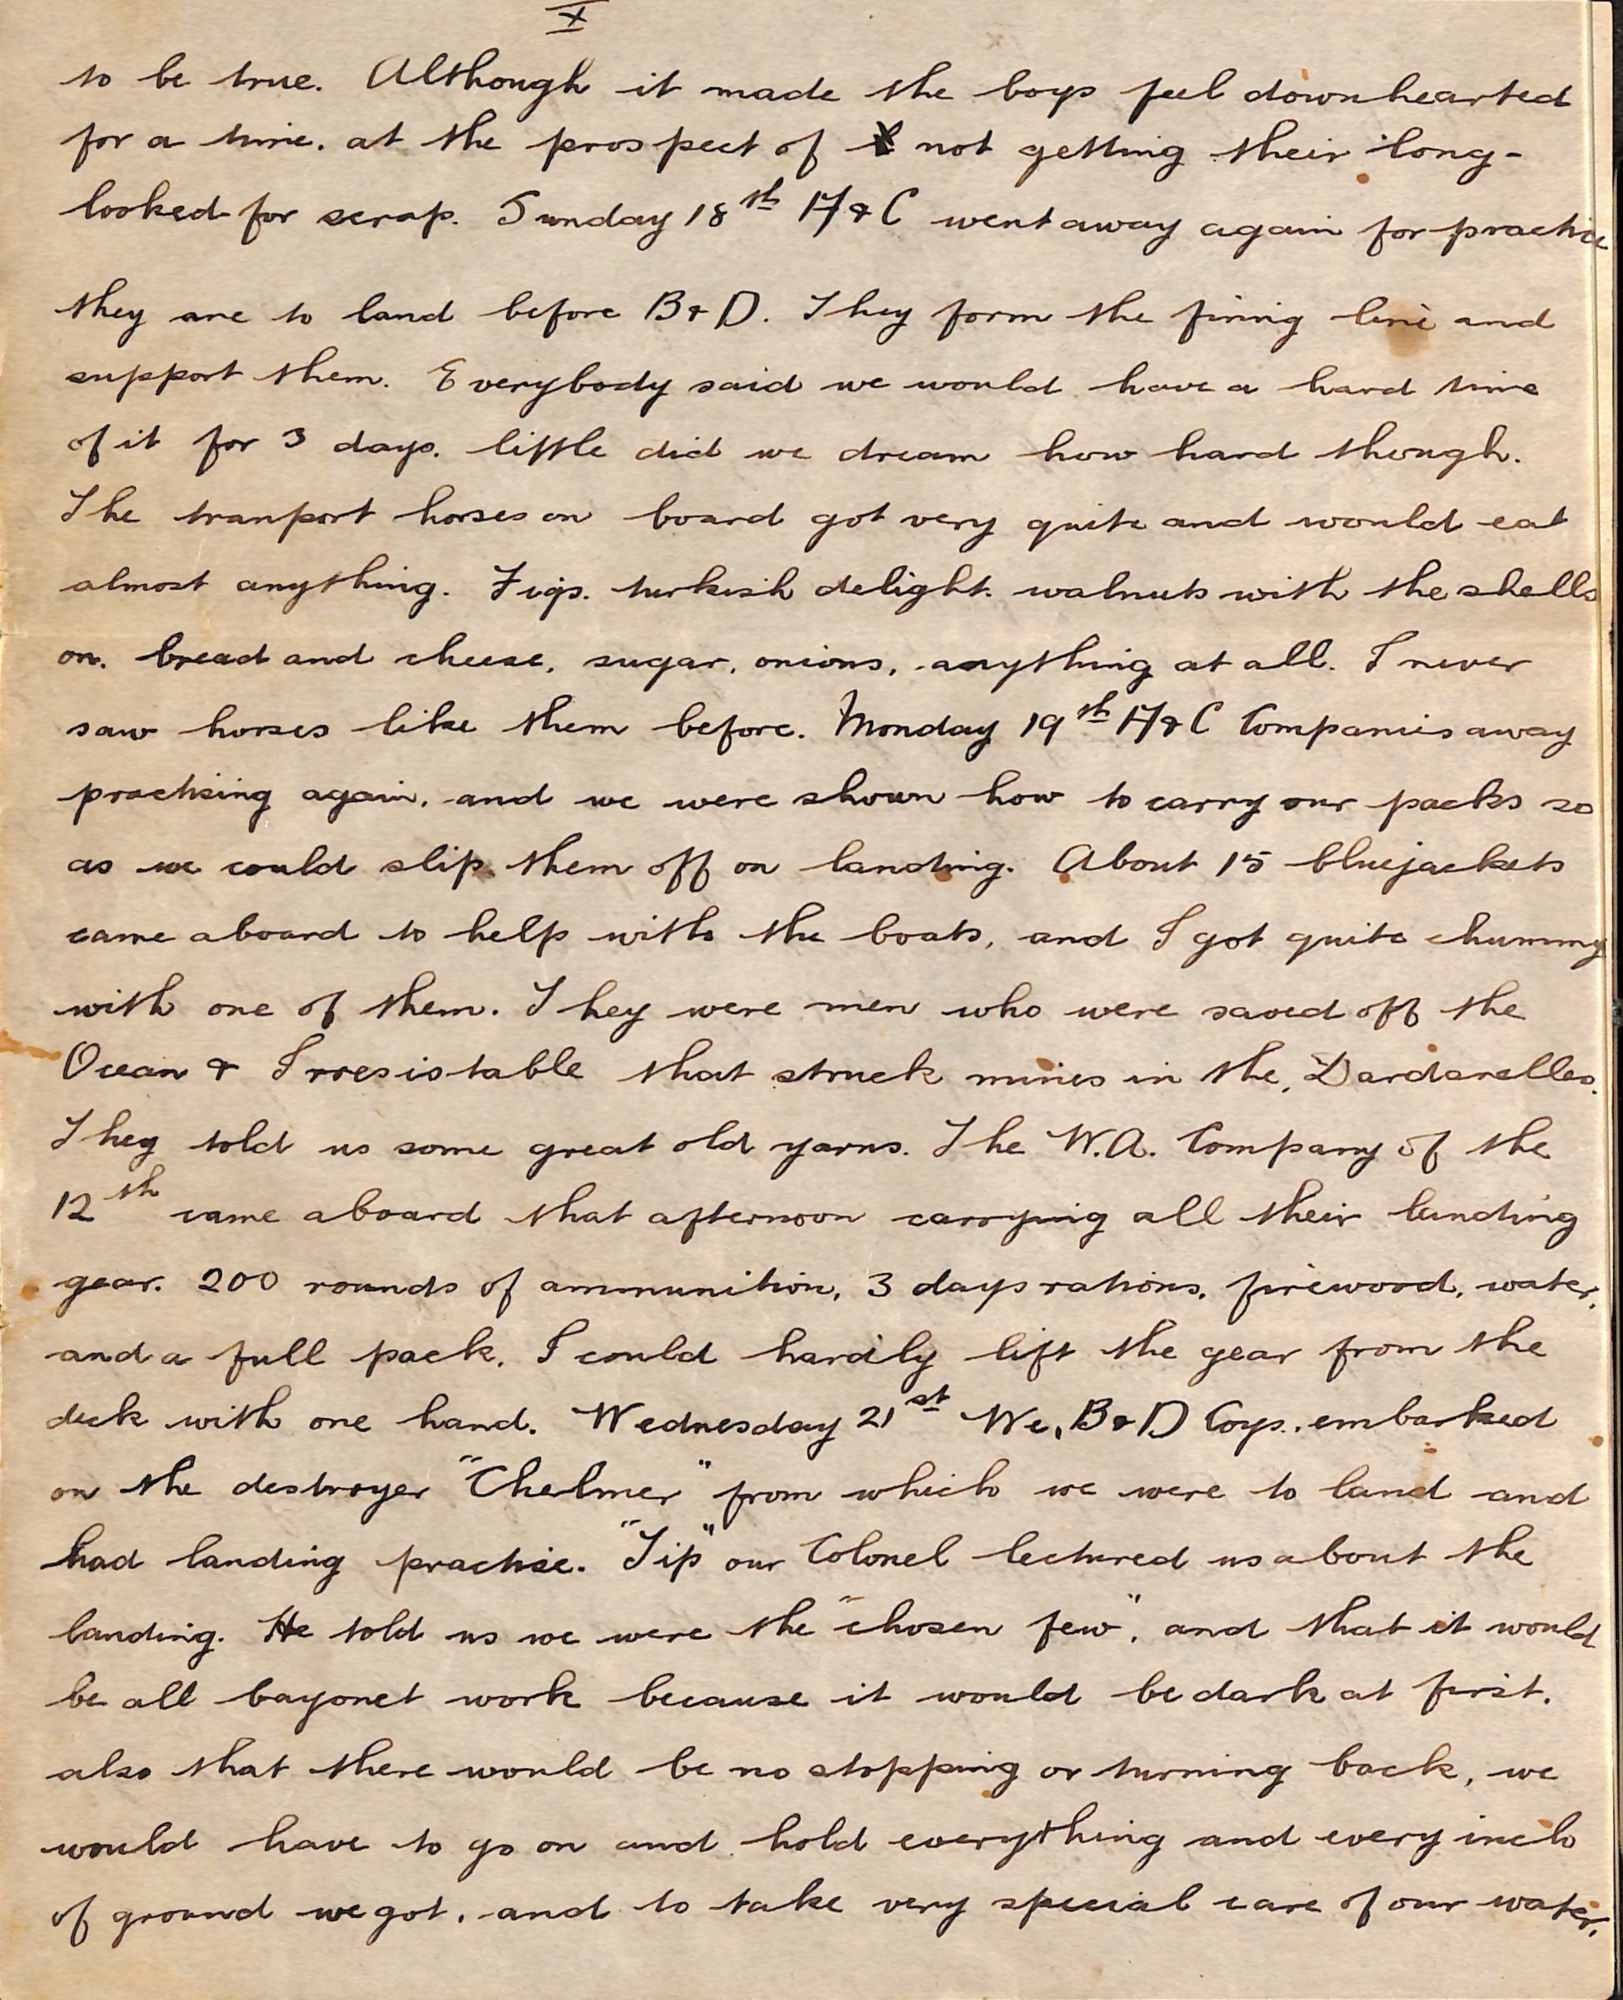 X
to be true. Although it made the boys feel downhearted
for a time. at the prospect of not getting their long-
looked for scrap. Sunday 18th A & C went away again for practice
they are to land before B & D. They form the firing line and
support them. Everybody said we would have a hard time
of it for 3 days. little did we dream how hard though.
The tranport horses on board got very quite and would eat
almost anything. Figs. turkish delight. walnuts with the shells
on. bread and cheese, sugar, onions, anything at all. I never
saw horses like them before. Monday 19th A & C Companies away
practising again, and we were shown how to carry our packs so
as we could slip them off on landing. About 15 bluejackets
came aboard to help with the boats, and I got quite chummy
with one of them. They were men who were saved off the
Ocean & Irresistable that struck mines in the, Dardanelles.
They told us some great old yarns. The W.A. Company of the
12th came aboard that afternoon carrying all their landing
gear. 200 rounds of ammunition, 3 days rations, firewood, water,
and a full pack. I could hardly lift the gear from the
deck with one hand. Wednesday 21st We, B & D Coys., embarked
on the destroyer "Chelmer" from which we were to land and
had landing practise. "Tip" our Colonel lectured us about the
landing. He told us we were the "chosen few", and that it would
be all bayonet work because it would be dark at first.
also that there would be no stopping or turning back, we
would have to go on and hold everything and every inch
of ground we got, and to take very special care of our water.